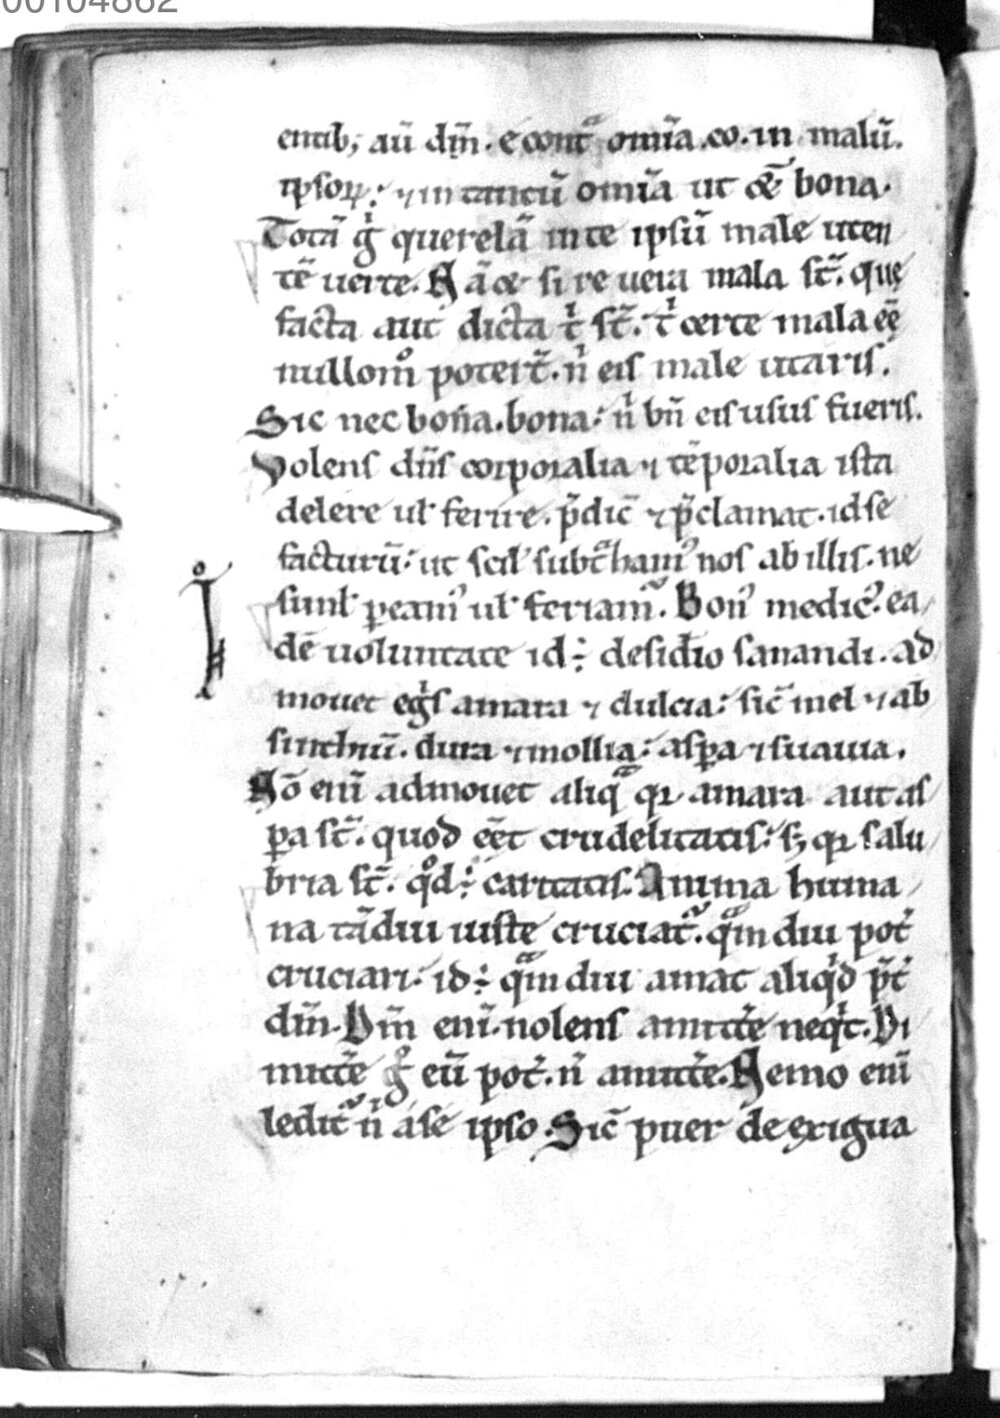 00104862
entib; aū dm̄. econtᷓ omīa.co.in malū.
ipsoꝝ: ⁊ in tantū omīa ut & bona.
Totā gͥ querelā in te ipsū male uten
tē uerte. si re uera mala st̄. quę
facta aut dicta tͥ st̄. tͥ certe mala eē
nullom̊ poter̄t. nͥ eis male utaris.
Sic nec bona.bona: nͥ bn̄ eis usus fueris.
Volens dn̄s corporalia ⁊ tēporalia ista
delere ul' ferire. p̄dic̄ ⁊ p̄clamat. id se
facturū: ut scil' subtᷓham᾽ nos ab illis. ne
simł ꝑeam᾽ ul' feriam᾽. Bon᾽ medic᾽. ea
dē uoluntate id ÷ desid̄io sanandi. ad
mouet egͥs amara ⁊ dulcia: sic̄ mel ⁊ ab
sinthiū. dura ⁊ mollia: asꝑa ⁊ suauia.
Nō eni̅ admouet aliqᷓ qꝛ amara aut as
ꝑa st̄. quod eēt crudelitatis: sꝫ qꝛ salu
bria st̄. qͦd ÷ caritatis. Anima huma
na tādiu iuste cruciat᷑. qᷓmdiu pot̄
cruciari: id ÷ qᷓmdiu amat aliqͥd p̄t̄
dm̄. Dm̄ eni̅ nolens amittē̅ neqͥt. Di
mittē̅ gͦ eū pot̄. n̄ amittē̅. Nemo eni̅
ledit᷑ nͥ a se ipso. Sic̄ puer de exigua